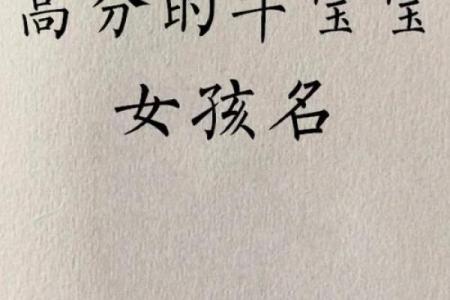 高分的牛宝宝
女孩名